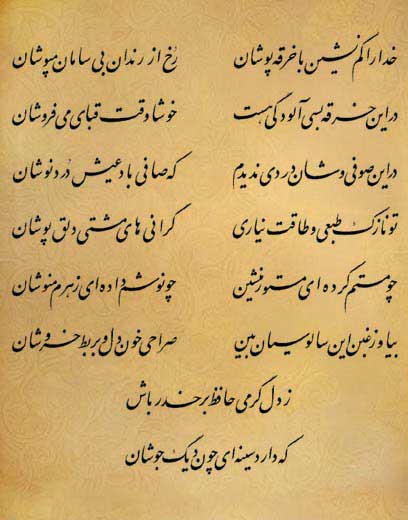 خدا را کم نشین با خرقه پوشان رُخ از رندان بی سامان مپوشان
در این خرقه بسی آلودگی هست خوشا وقت قبای می فروشان
در این صوفی وشان دردی ندیدم که صافی باد عیش دُردنوشان
تو نازک طبعی و طاقت نیاری گرانی های مشتی دلق پوشان
چو مستم کرده ای مستور منشین چو نوشم داده ای زهرم منوشان
بیا وز غبن این سالوسیان بین صراحی خون دل و بربط خروشان
ز دل گرمی حافظ بر حذر باش
که دارد سینه ای چون دیگ جوشان